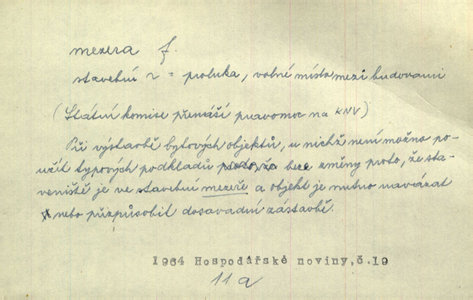 mezera f.
stavební ~ = proluka, volné místo mezi budovami
(Státní komise přenáší pravomoc na KNV)
Při výstavbě bytových objektů, u nichž není možno po-
užít typových podkladů beze změny proto, že sta-
veniště je ve stavební mezeře a objekt je nutno navázat
nebo přizpůsobit dosavadní zástavbě.
1964 Hospodářské noviny, č.19
11a